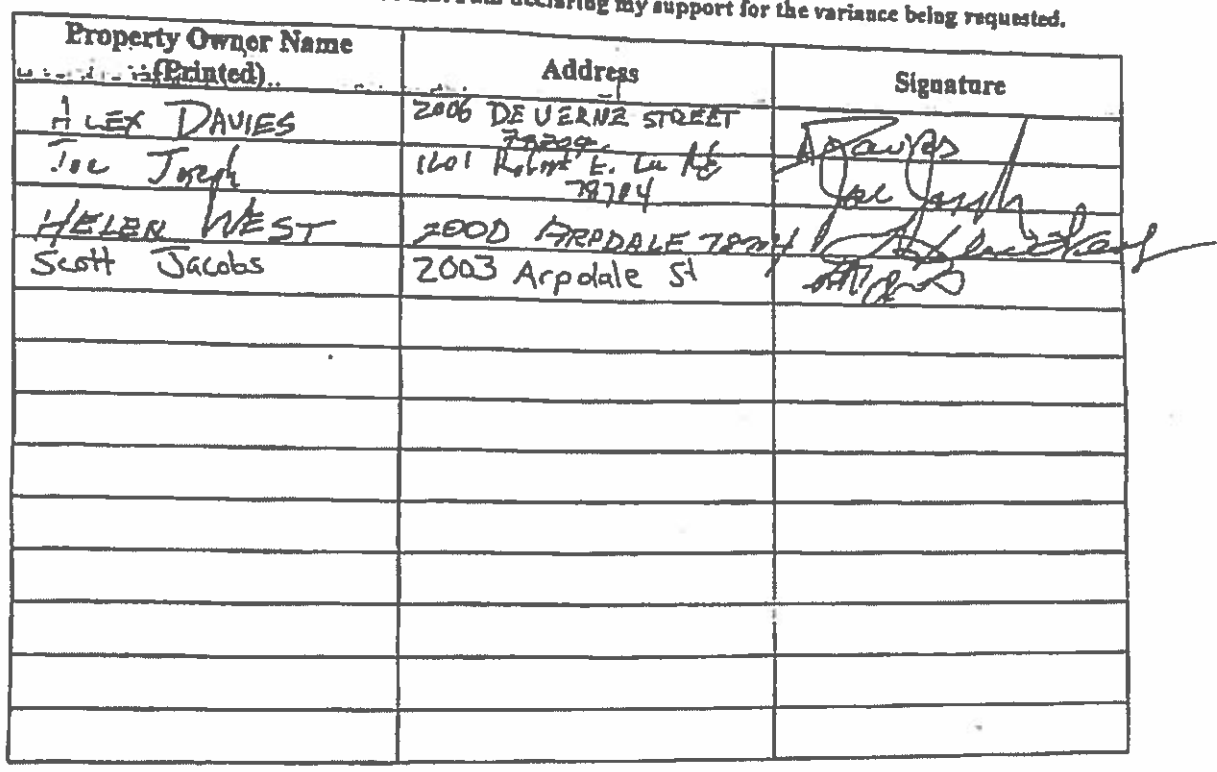 declaring my support for the variance being requested.
Property Owner Name
(Printed)
Address
Signature
ALEX DAVIES
2006 DE VERNE STREET
78704
A Davies
Joe Joseph
1601 Robert E. Lee Rd
78704
Joe Joseph
HELEN WEST
2000 ARPDALE 78704
Scott Jacobs
2003 Arpdale St